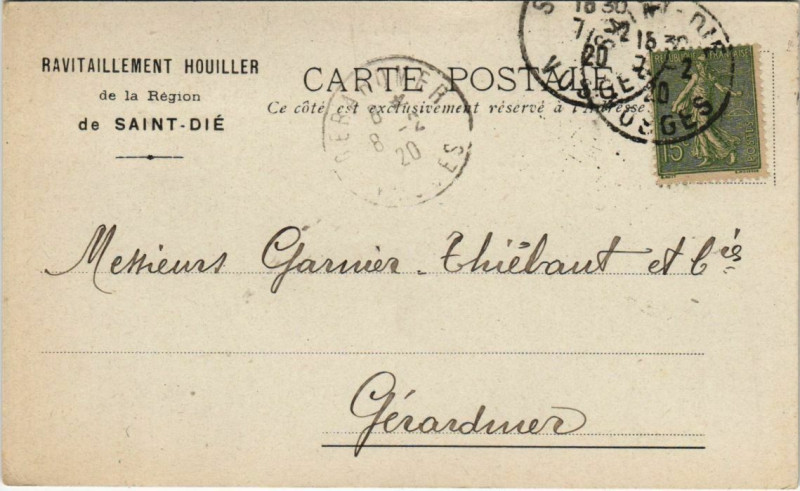 RAVITAILLEMENT HOUILLER
de la Région
de SAINT-DIÉ
CARTE POSTALE
Ce côté est exclusivement réservé à l'Adresse
16 30
7 2
20
VOSGES
16 30
7 - 2
20
VOSGES
GERARDMER
8 30
8 - 2
20
15
POSTES
Messieurs Garnier-Thiébaut et Cies
Gérardmer